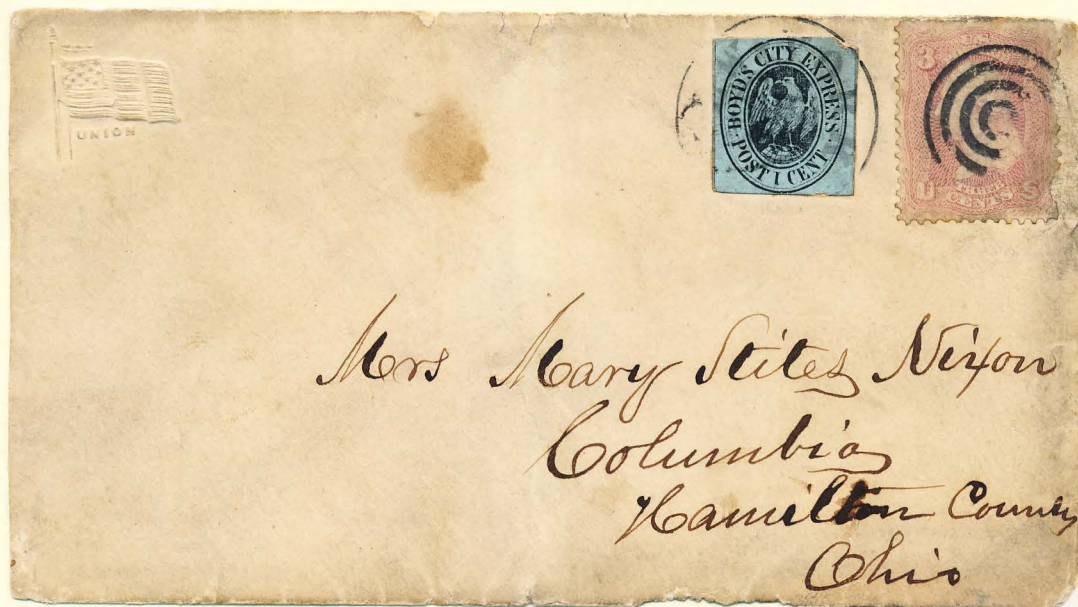 UNION
BOYD'S CITY EXPRESS
POST 1 CENT
3 U.S.
U S
CENTS
Mrs Mary Stites Nixon
Columbia
Hamilton County
Ohio